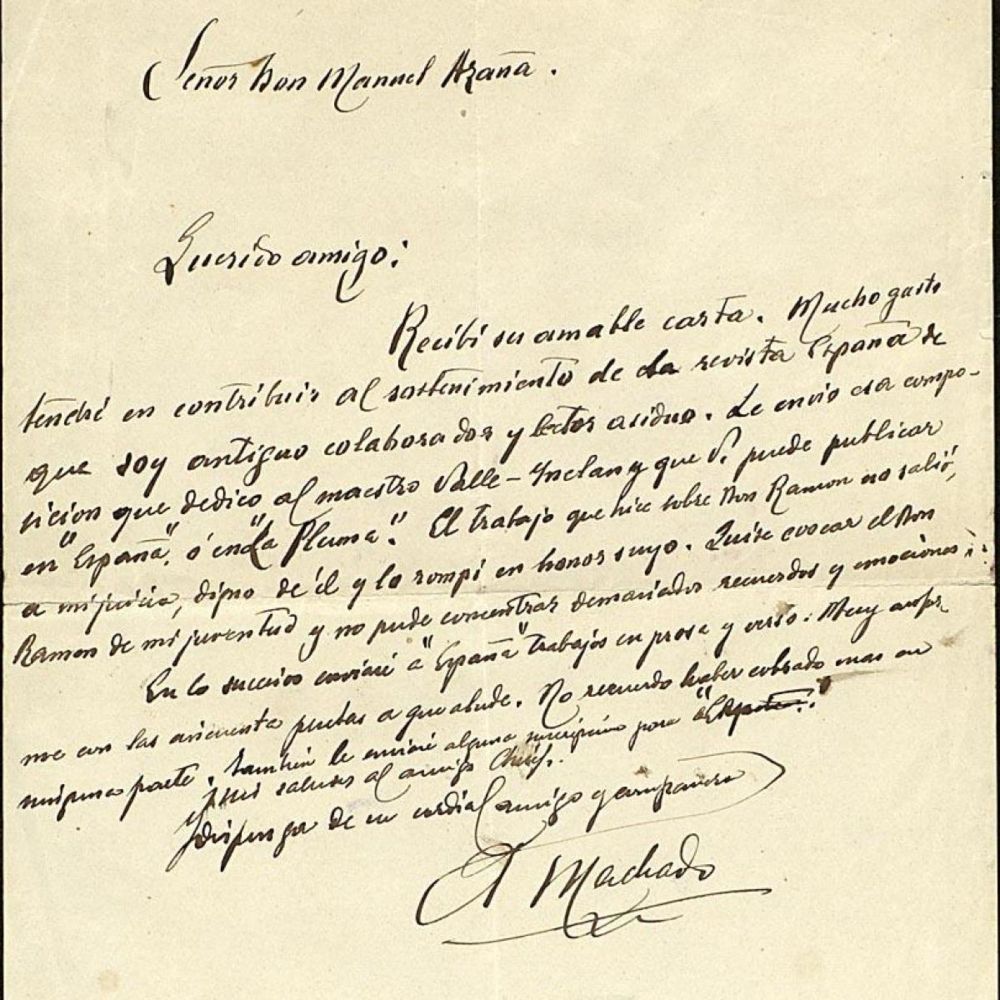 Señor Don Manuel Azaña.
Querido amigo:
Recibí su amable carta. Mucho gusto
tendré en contribuir al sostenimiento de la revista España de
que soy antiguo colaborador y lector asiduo. Le envio esa compo-
sicion que dedico al maestro Valle-Inclan y que V. puede publicar
en "España", ó en "La Pluma". El trabajo que hice sobre Don Ramon no salió,
a mi juicio, digno de él y lo rompi en honor suyo. Quise evocar el Don
Ramon de mi juventud y no pude concentrar demasiados recuerdos y emociones.
En lo sucesivo enviaré a "España" trabajos en prosa y verso. Muy
me con las cincuenta pesetas a que alude. No recuerdo haber cobrado mas en
ninguna parte. Tambien le enviaré alguna suscripción para "España".
y mis saludos al amigo
disponga de su cordial amigo y compañero
A Machado